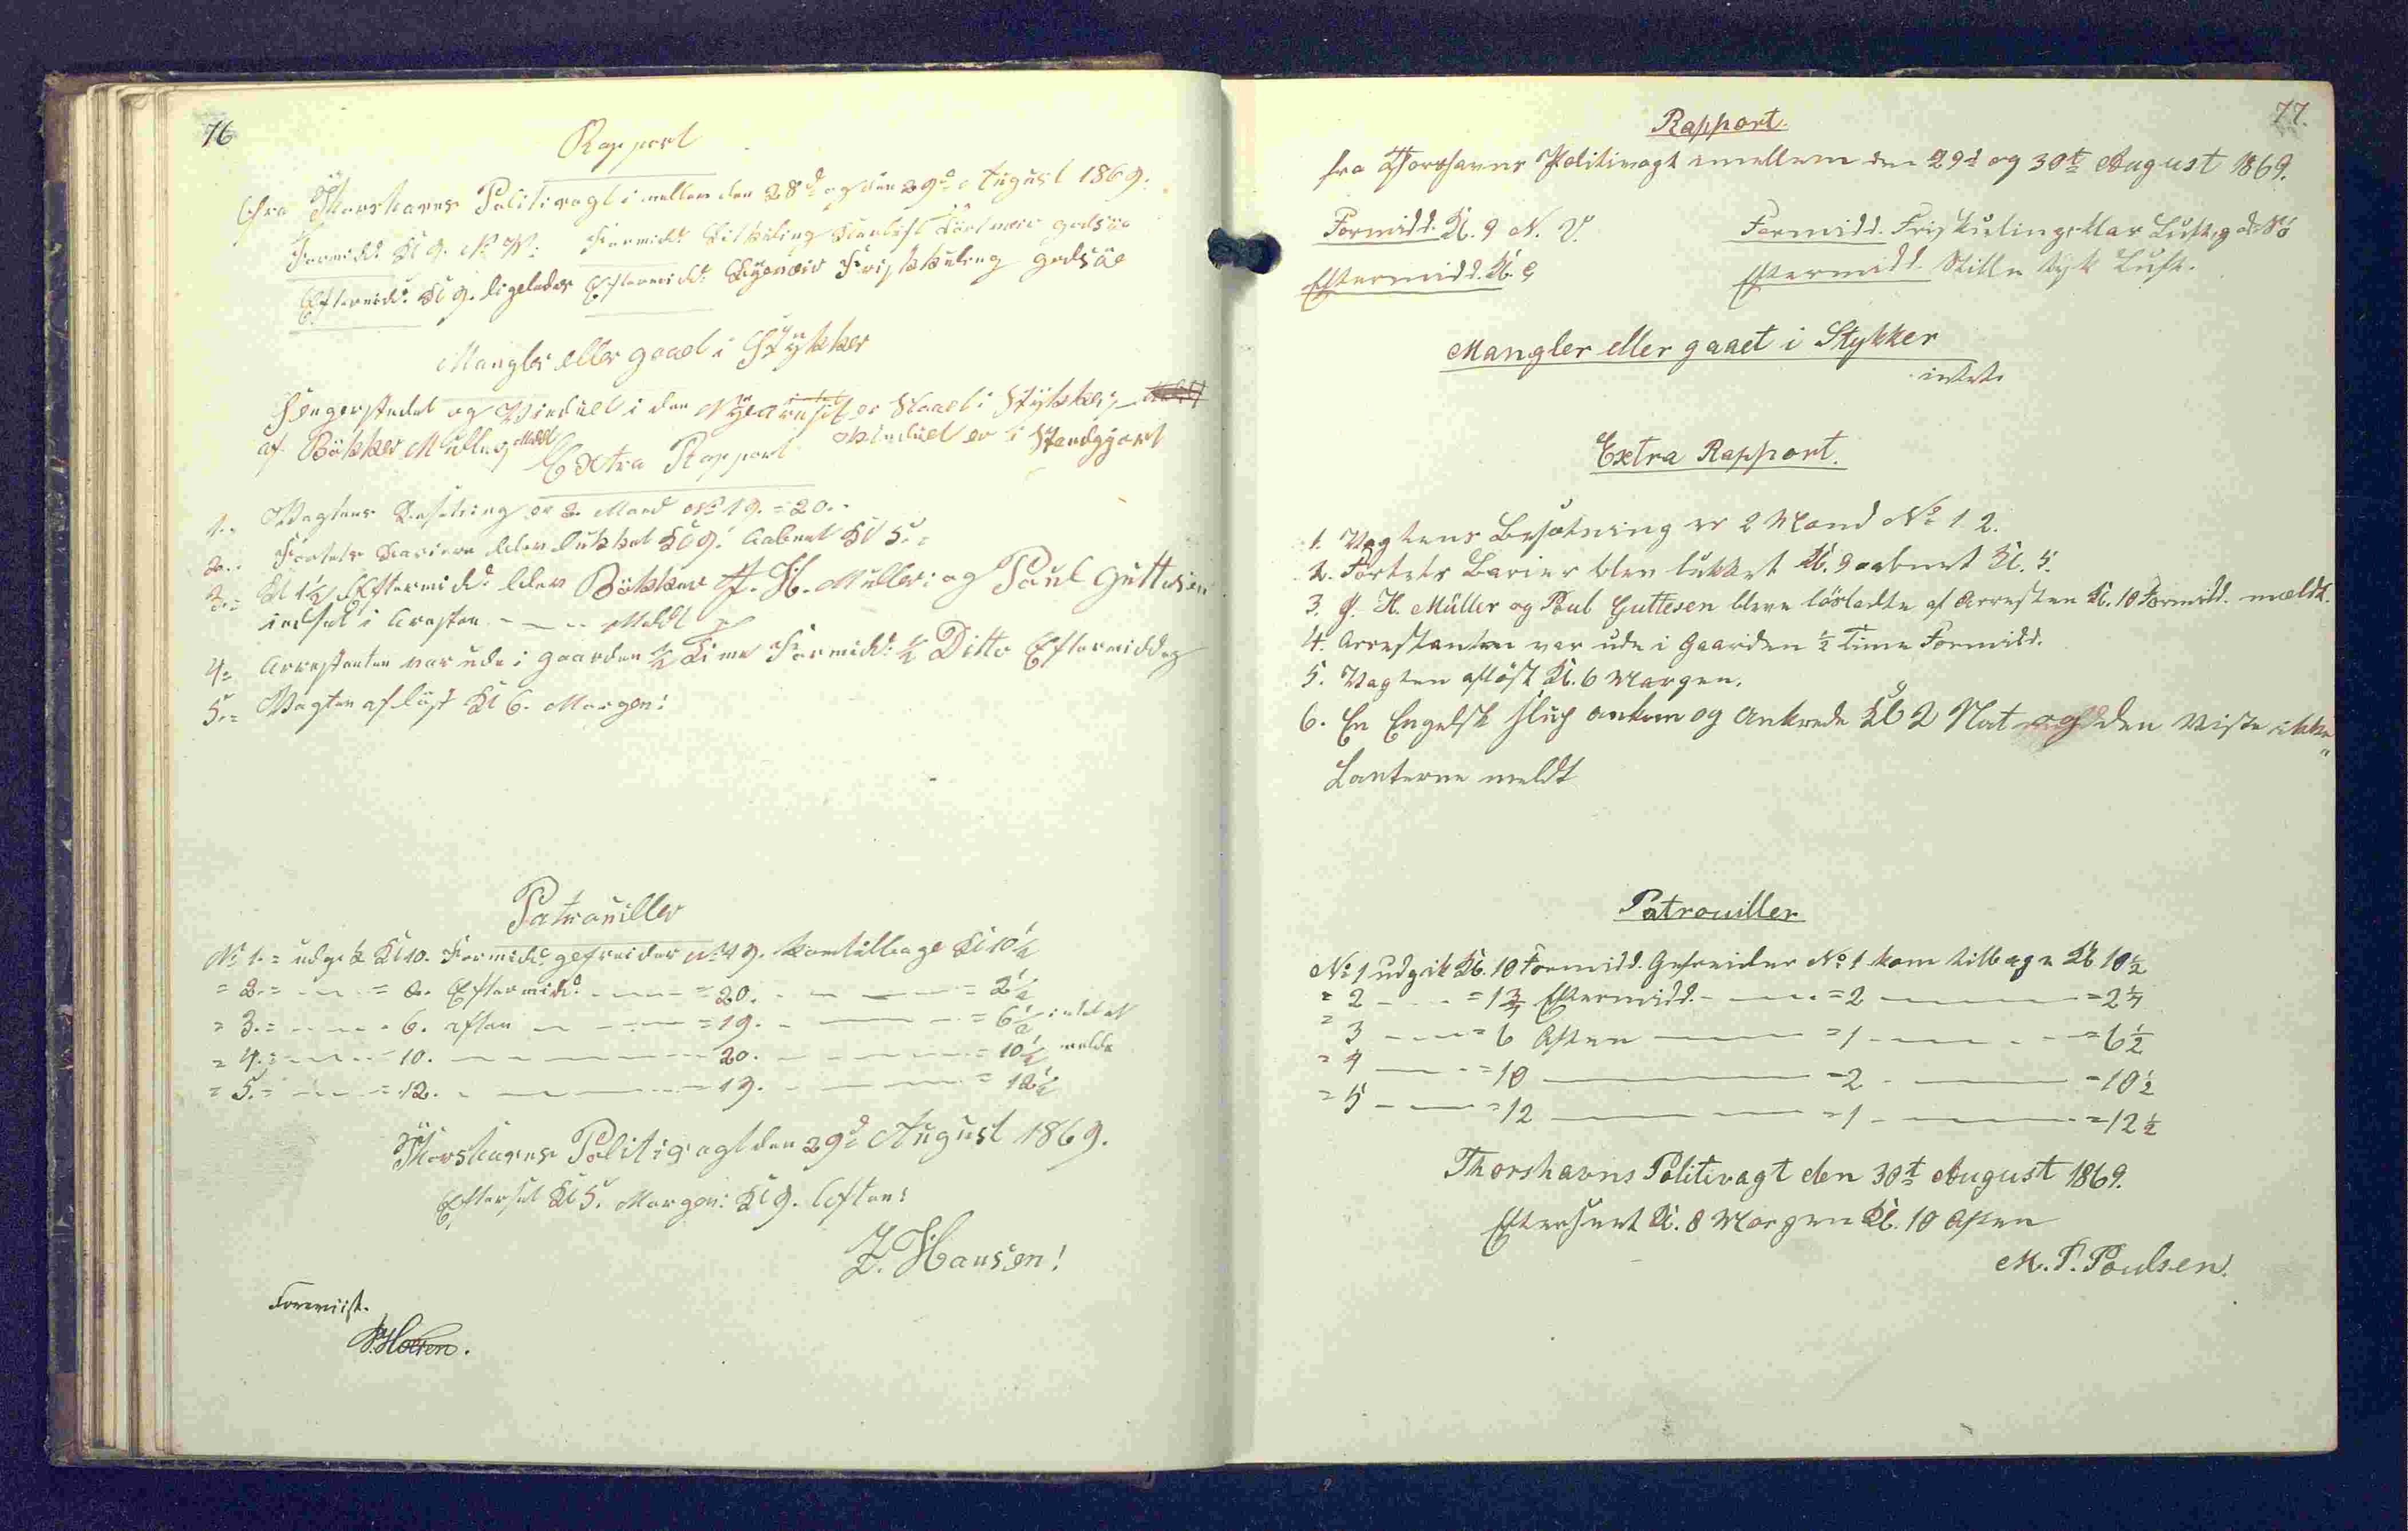 76
Rapport
fra Thorshavns Politivagt imellem den 28d og den 29d August 1869.
Formidd. Kl 9. N. W. Formidd. Kuling Tört veir godsöe
Eftermidd. Kl 9. ligeledes Eftermidd. Frisk kuling godsöe
Mangler eller gaaet i Stykker
Sengestedet og Vinduet i den nye Arrest er Slaaet i Stykker,
af Bökker Müller, Meldt Vinduet er i Standgjort
Extra Rapport
1.. Vagtens Besetning er 2. Mand No 19. = 20..
2.. Fortets Bariere blev lukket Kl 9. aabnet Kl 5..
3.. Kl 1½ Eftermidd. blev Bökker H. Müller og Poul Guttesen
indsat i Aresten Meldt
4.. Arrestanten var ude i gaarden ½ Time Formidd. ½ Ditto Eftermiddag
5.. Vagten aflöst Kl 6. Morgen:
Patrouiller
No 1. = udgik Kl 10. Formidd. gefreider No 19. kom tilbage Kl 10½
= 2. = — = 2. Eftermidd. — = 20. — = 2½
= 3. = — 6. aften — = 19. — = 6½ intet at
= 4. = — 10. — 20. — = 10½ melde
= 5. = — = 12. — 19. — = 12½
Thorshavns Politivagt den 29d August 1869.
Efterset Kl 5. Morgen: Kl 9. Aften:
Z. Hansen!
Foreviist.
77.
Rapport.
fra Thorshavns Politivagt imellem den 29d og 30t August 1869.
Formidd. Kl. 9 N. V. Formidd. Frisk Kuling klar Luft, god Sö
Eftermidd. Kl. 9 Eftermidd. Stille tyk Luft.
Mangler eller gaaet i Stykker
intet.
Extra Rapport.
1. Vagtens Besætning er 2 Mand No 1 2.
2. Fortets Barier blev lukket Kl. 9 aabnet Kl. 5.
3. H. Müller og Poul Guttesen bleve lösladte af Arresten Kl. 10 Formidd. meldt.
4. Arrestanten var ude i Gaarden ½ Time Formidd.
5. Vagten aflöst Kl. 6 Morgen.
6. En Engelsk Slup ankom og Ankrede Kl 2 Nat og den viste ikke
Lanterne meldt
Patrouiller
No 1 udgik Kl. 10 Formidd. Gefreider No 1 kom tilbage Kl. 10½
= 2 — = 1¾ Eftermidd. — = 2 — = 2¼
= 3 — = 6 Aften — = 1 — = 6½
= 4 — = 10 — = 2 — = 10½
= 5 — = 12 — = 1 — = 12½
Thorshavns Politivagt den 30t August 1869.
Efterseet Kl. 8 Morgen Kl. 10 Aften
M. P. Poulsen.